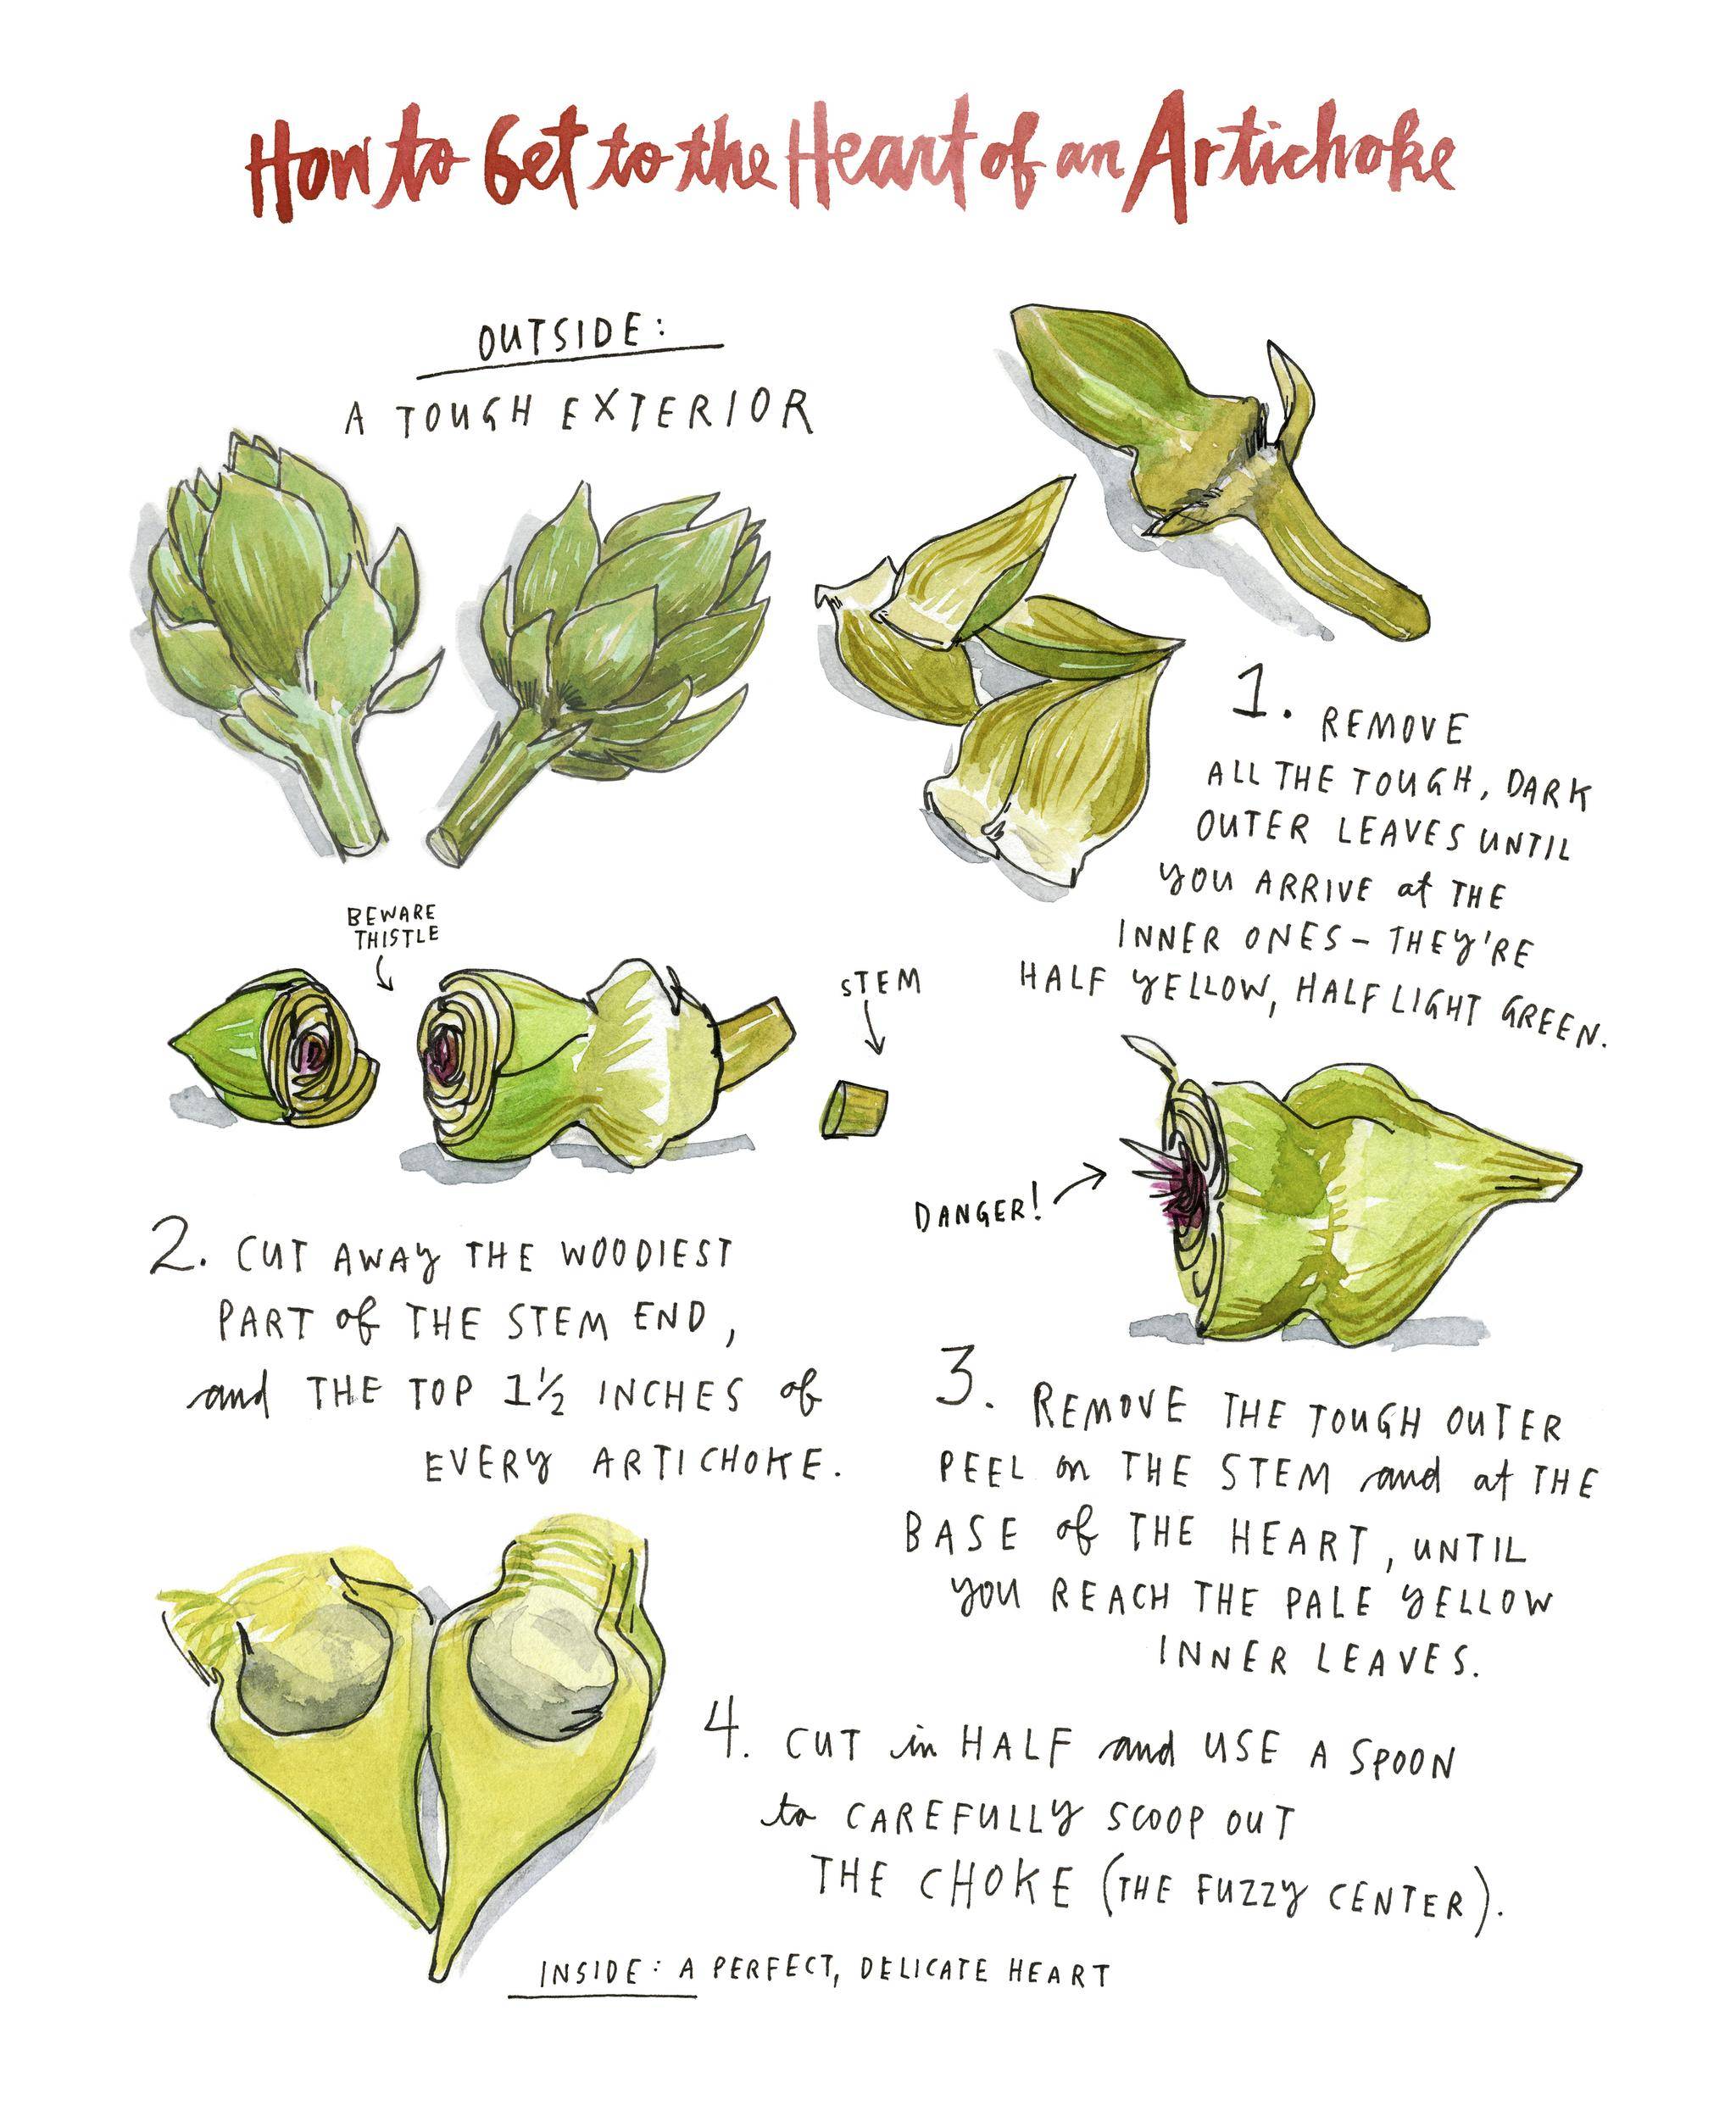 How to Get to the Heart of an Artichoke
OUTSIDE:
A TOUGH EXTERIOR
1. REMOVE
ALL THE TOUGH, DARK
OUTER LEAVES UNTIL
YOU ARRIVE at THE
INNER ONES – THEY'RE
HALF YELLOW, HALF LIGHT GREEN.
BEWARE
THISTLE
STEM
2. CUT AWAY THE WOODIEST
PART of THE STEM END,
and THE TOP 1½ INCHES of
EVERY ARTICHOKE.
DANGER!
3. REMOVE THE TOUGH OUTER
PEEL on THE STEM and at THE
BASE of THE HEART, UNTIL
YOU REACH THE PALE YELLOW
INNER LEAVES.
4. CUT in HALF and USE A SPOON
to CAREFULLY SCOOP OUT
THE CHOKE (THE FUZZY CENTER).
INSIDE: A PERFECT, DELICATE HEART